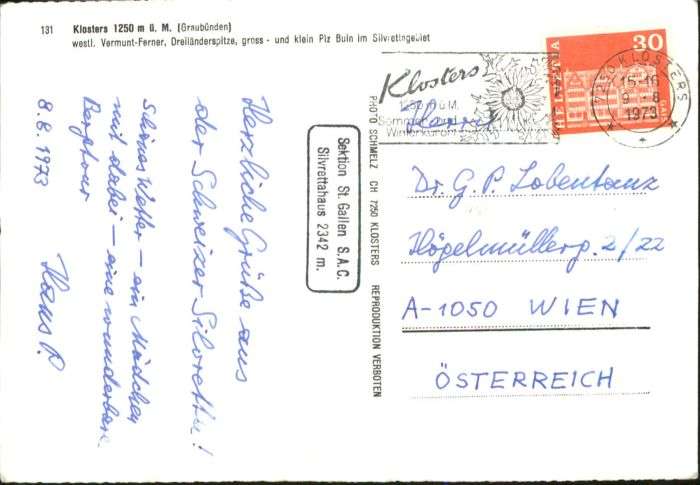 131 Klosters 1250 m ü. M. (Graubünden)
westl. Vermunt-Ferner, Dreiländerspitze, gross- und klein Piz Buin im Silvrettagebiet
Herzliche Grüße aus
der Schweizer Silvretta!
Schönes Wetter – ein Mädchen
mit dabei – eine wunderbare
Bergtour
8.8.1973 Hans P.
Sektion St. Gallen S.A.C.
Silvrettahaus 2342 m.
PHOTO SCHMELZ CH 7250 KLOSTERS REPRODUKTION VERBOTEN
Klosters
1250 m ü M.
Sommer und
Winterkurort
HELVETIA
30
7250 KLOSTERS
9.-8
1973
Herrn
Dr. G. P. Lobentanz
Högelmüllerg. 2/22
A-1050 WIEN
ÖSTERREICH